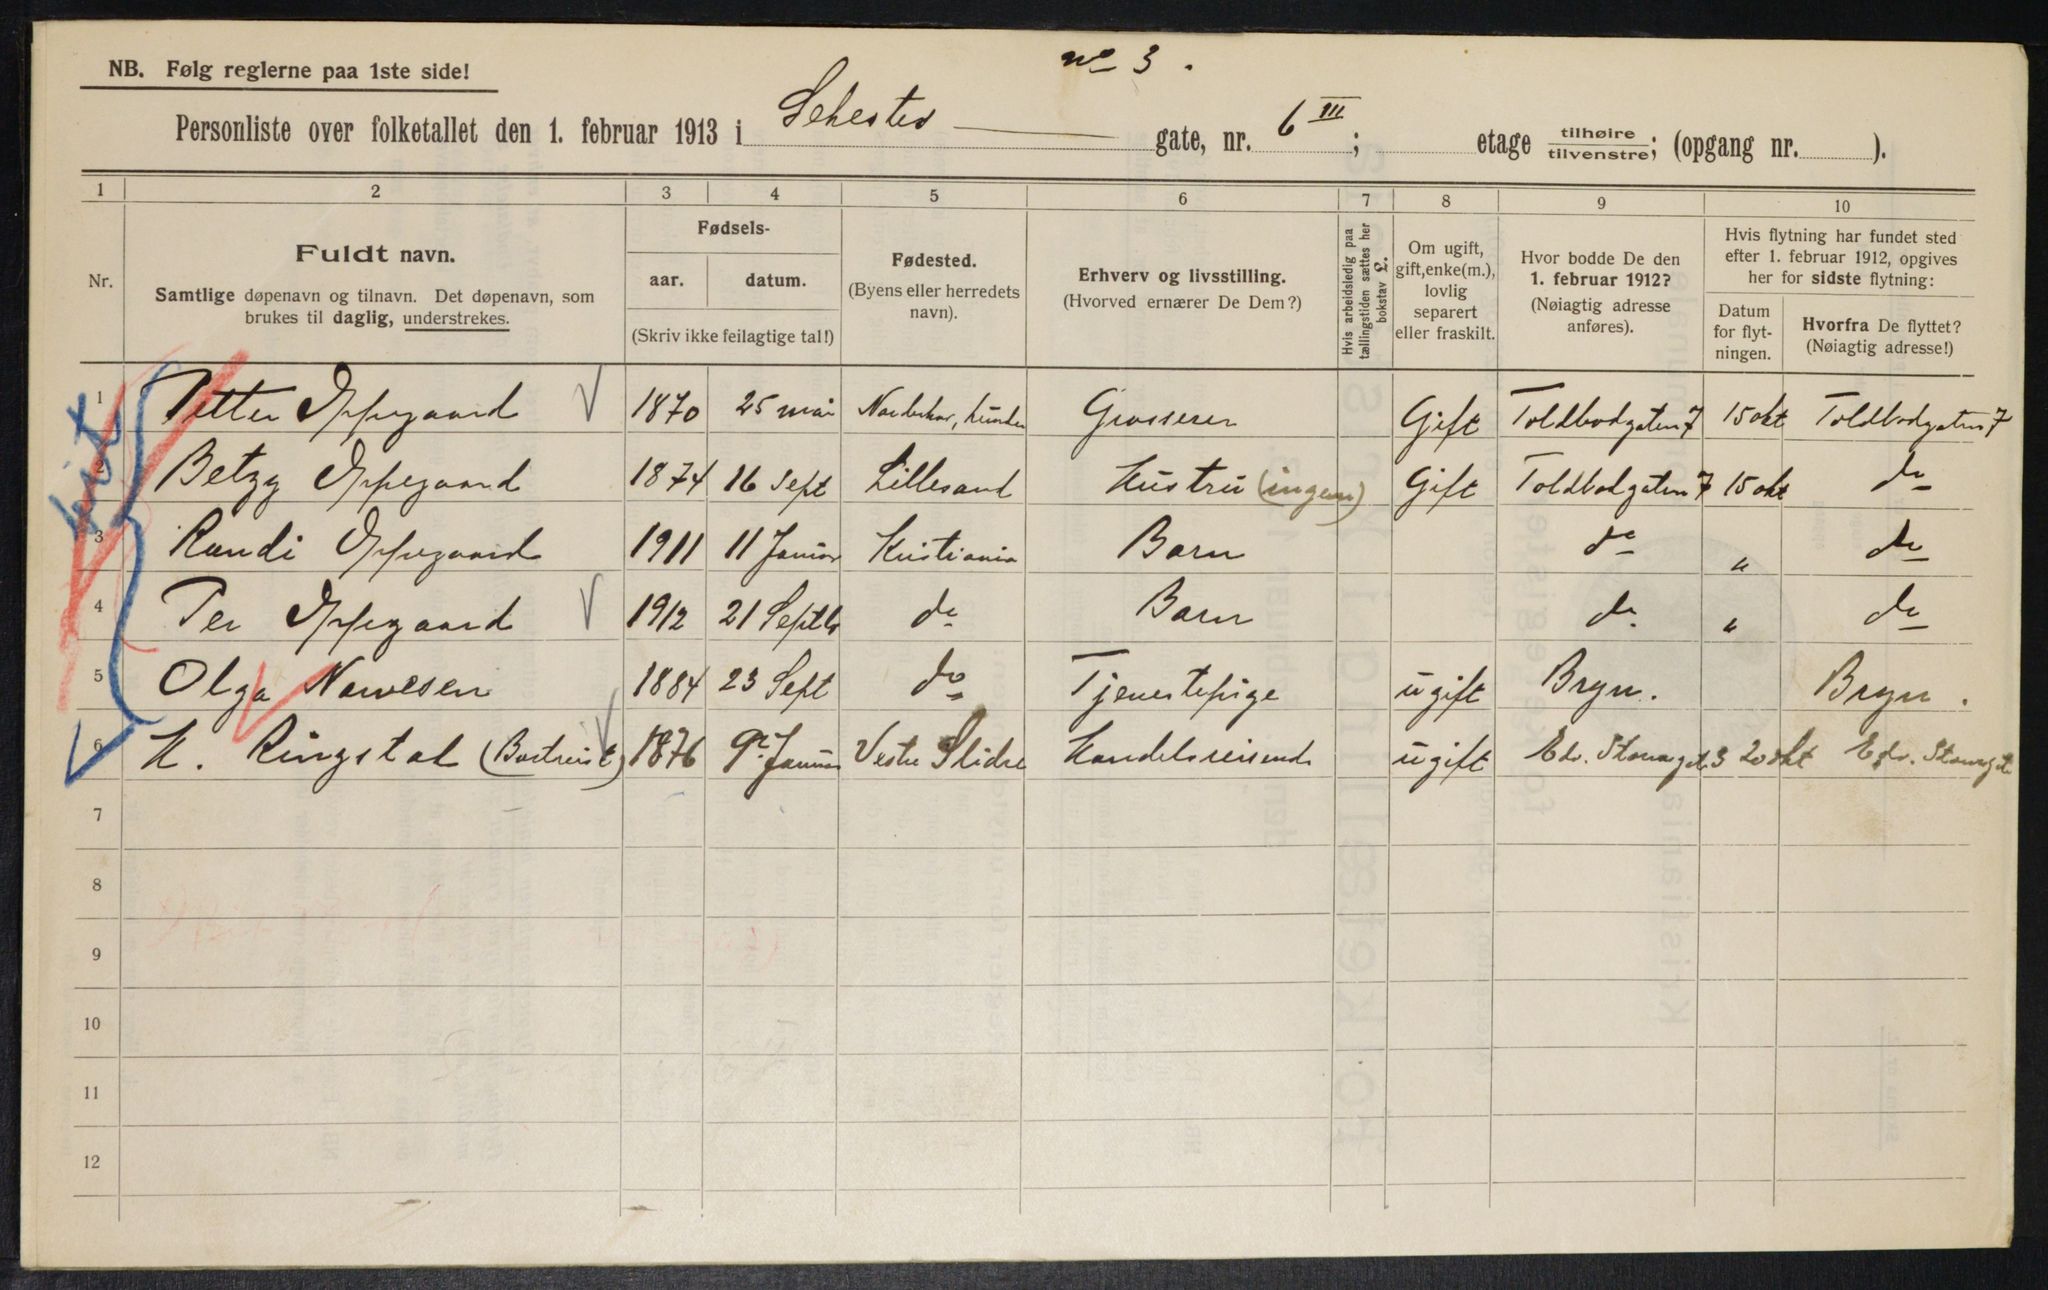 no 3.
NB. Følg reglerne paa 1ste side!
Personliste over folketallet den 1. februar 1913 i Sehesteds gate, nr. 6 III; etage tilhøire/tilvenstre; (opgang nr. ).
1 2 3 4 5 6 7 8 9 10
Nr.
Fuldt navn.
Samtlige døpenavn og tilnavn. Det døpenavn, som
brukes til daglig, understrekes.
Fødsels-
aar. datum.
(Skriv ikke feilagtige tal!)
Fødested.
(Byens eller herredets
navn).
Erhverv og livsstilling.
(Hvorved ernærer De Dem?)
Hvis arbeidsledig paa
tællingstiden sættes her
bokstav L.
Om ugift,
gift, enke(m.),
lovlig
separert
eller fraskilt.
Hvor bodde De den
1. februar 1912?
(Nøiagtig adresse
anføres).
Hvis flytning har fundet sted
efter 1. februar 1912, opgives
her for sidste flytning:
Datum
for flyt-
ningen.
Hvorfra De flyttet?
(Nøiagtig adresse!)
1 Petter Oppegaard 1870 25 mai Grosserer Gift Toldbodgaten 7 15 okt Toldbodgaten 7
2 Betzy Oppegaard 1874 16 Sept Lillesand Hustru (ingen) Gift Toldbodgaten 7 15 okt do
3 Randi Oppegaard 1911 11 Januar Kristiania Barn do " do
4 Per Oppegaard 1912 21 Septb do Barn do " do
5 Olga Narvesen 1884 23 Sept do Tjenestepige ugift Bryn. Bryn.
6 K. Ringstad 1876 9 Januar Vestre Slidre Handelsreisende ugift Edv. Stormsgt 3 20 okt Edv. Stormsgt
7
8
9
10
11
12